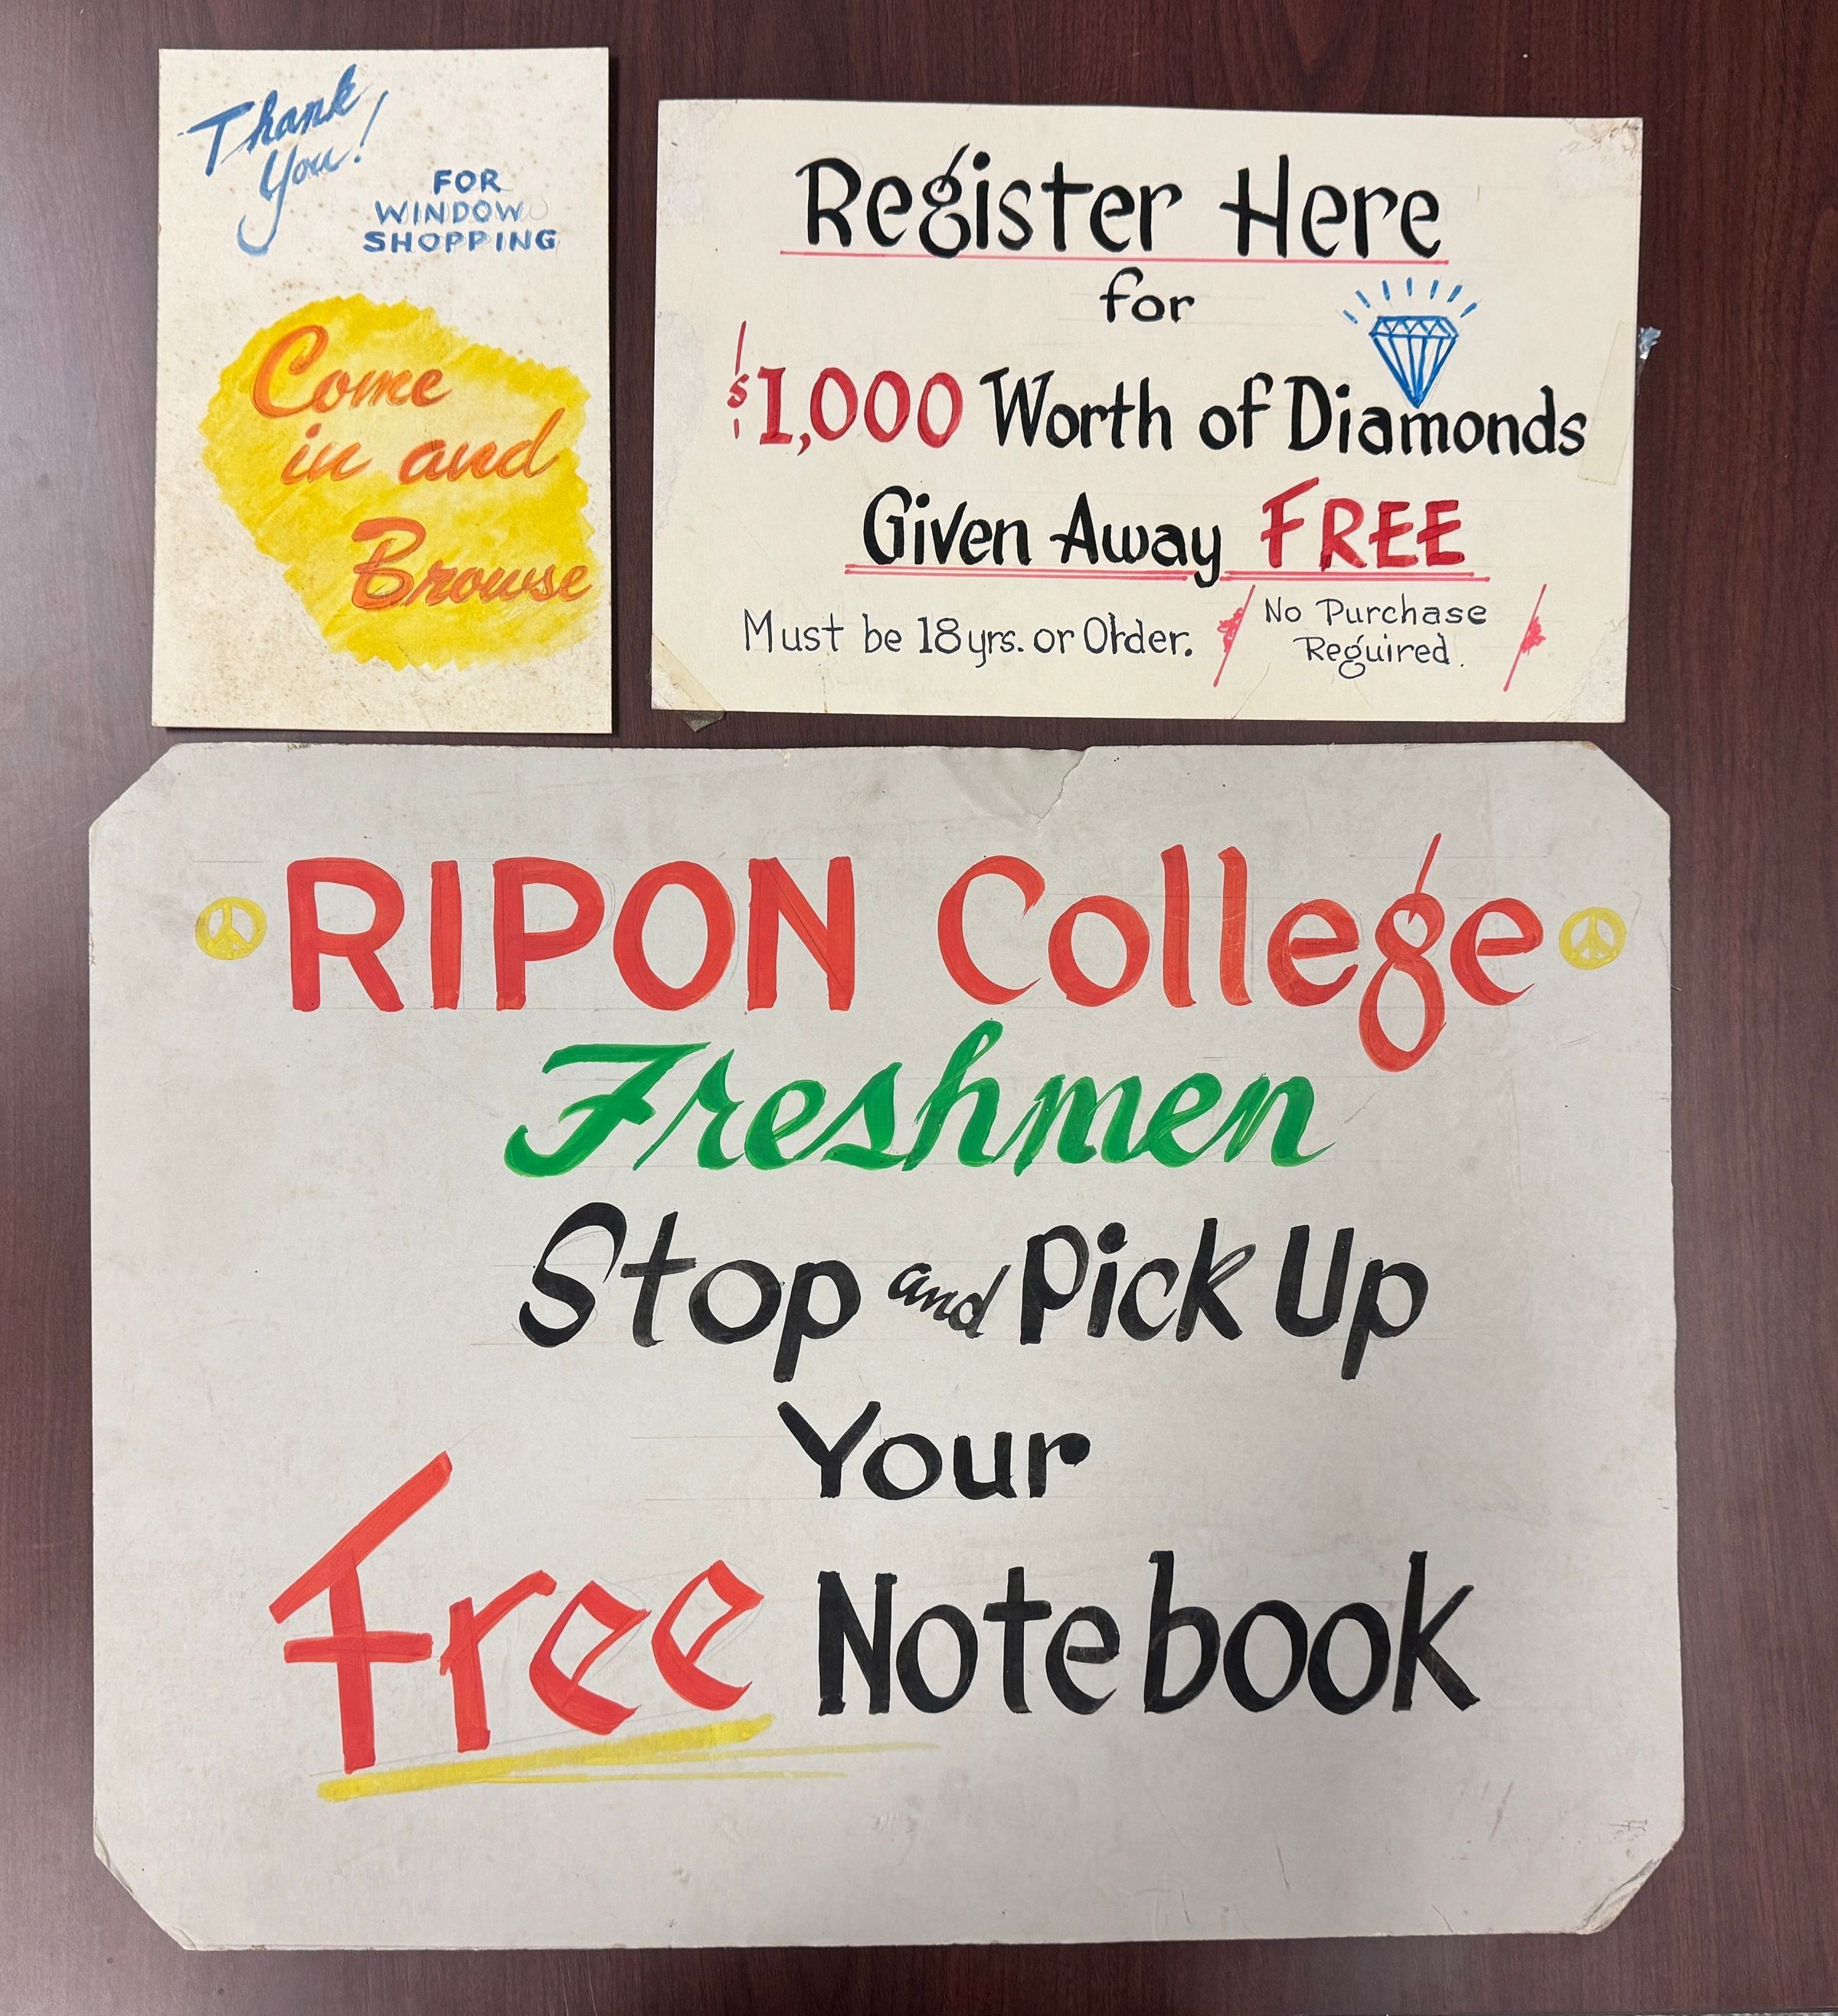 Thank
You!
FOR
WINDOW
SHOPPING
Come
in and
Browse
Register Here
for
$1,000 Worth of Diamonds
Given Away FREE
Must be 18yrs. or Older.
No Purchase
Required.
RIPON College
Freshmen
Stop and Pick Up
Your
Free Notebook